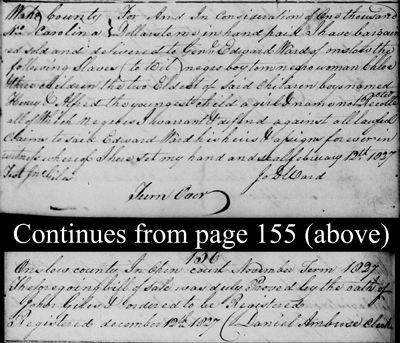 Wake County { For And In Consideration of One thousand
No. Carolina { Dollars to me in hand paid I have bargain
ed sold and delivered to Genl. Edward Ward of onslow the
following Slaves (to Wit) negro boy tom negro woman Chloe
three children the two Eldest of said Children boys named
Henry & the youngest child a girl &
all of Which Negroes I warrant & defend against all lawful
claims to said Edward Ward his heirs & assigns forever in
witness whereof I have set my hand and seal february 12th 1827
Test Jno Giles Jo D Ward
Turn Over
Continues from page 155 (above)
156
Onslow county In Open court November Term 1827
The foregoing bill of sale was duly Proved by the oath of
John Giles & ordered to be Registered
Registered december 12th 1827 (Daniel Ambrose Clerk